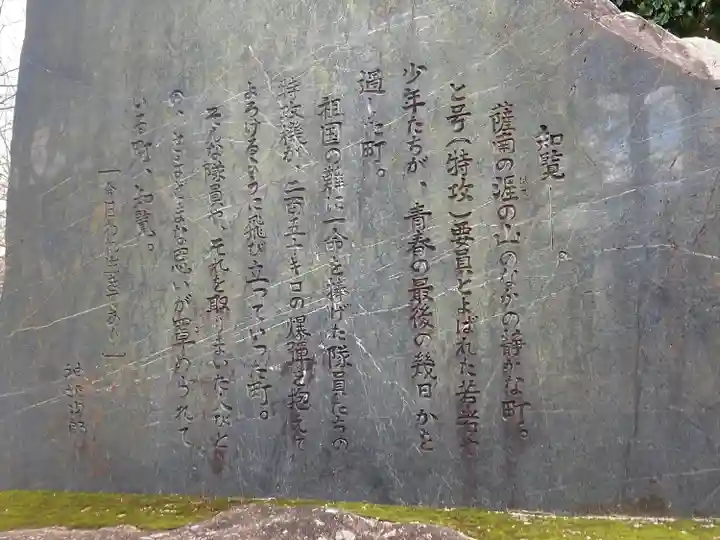 知覧――。
薩南の涯の山のなかの静かな町。
と号(特攻)要員とよばれた若者と
少年たちが、青春の最後の幾日かを
過した町。
祖国の難に一命を捧げた隊員たちの
特攻機が、二百五十キロの爆弾を抱えて
よろけるように飛び立っていった町。
そんな隊員や、それを取りまいた人びと
の、さまざまな思いが罩められて
いる町、知覧。
「今日われ生きてあり」